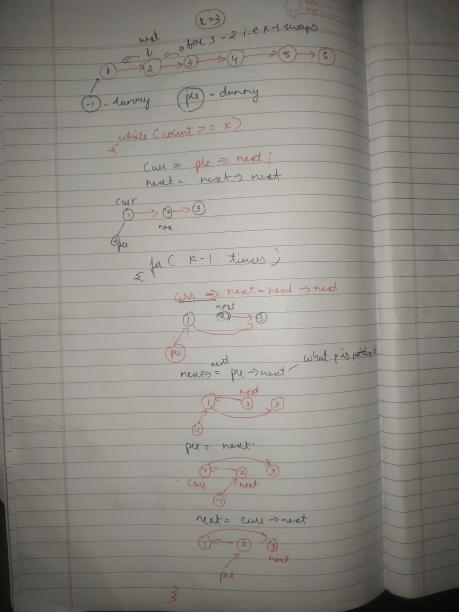 k=3
next
for 3 - 2 i.e k-1 swaps
1 2 3 4 5 6
-1 - dummy pre = dummy
while (count >= k)
{
Curr = pre -> next;
next = next -> next
curr
1 2 3
nex
pre
for ( k-1 times ;
{
curr -> next = next -> next
next
1 2 3
pre
next -> next = pre -> next
1 next 2 3
-1
pre = next.
1 2 3
Curr next
-1
next = curr -> next
1 2 3
next
pre
}